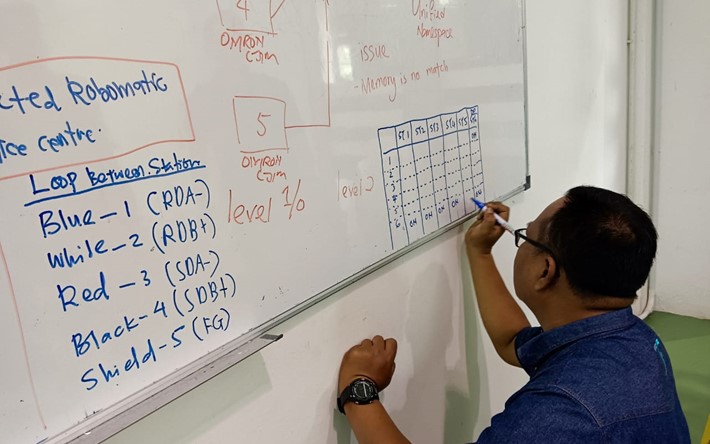 cted Robomatic
ice centre.
Loop Between Station
Blue - 1 (RDA-)
While - 2 (RDB+)
Red - 3 (SDA-)
Black - 4 (SDB+)
Shield - 5 (FG)
4
OMRON
CJ1M
5
OMRON
CJ1M
level 1/0
Unified
Namespace
issue
- Memory is no match
level 2
ST1 ST2 ST3 ST4 ST5
1
2
3
4
5
6 ON ON ON ON ON